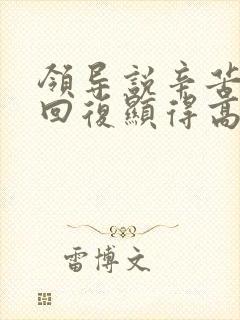 領导説辛苦
回復顯得高
雷博文